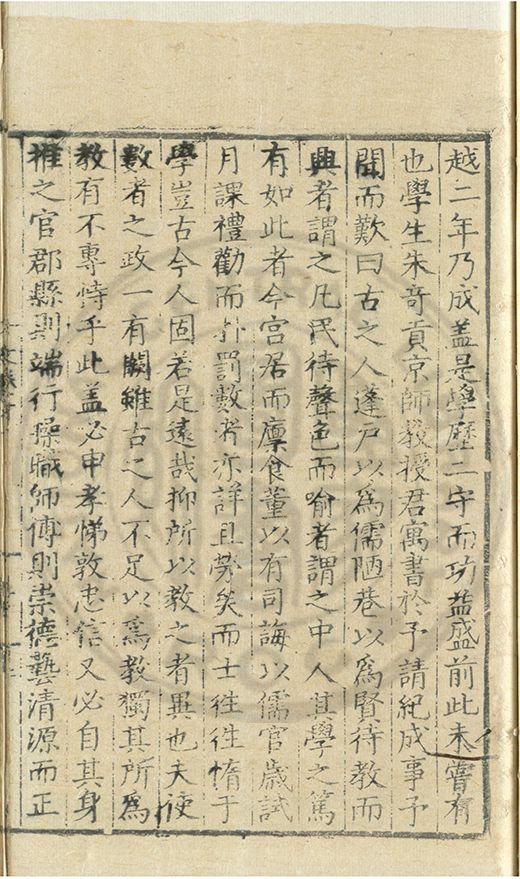 越二年乃成盖是學歷二守而功益盛前此未甞有
也學生朱奇貢京師教授君寓書於予請紀成事予
聞而歎曰古之人蓬戸以爲儒陋巷以爲賢待教而
興者謂之凡民待聲色而喻者謂之中人其學之篤
有如此者今宫居而廪食董以有司誨以儒官歲試
月課禮勸而扑罰數者亦詳且勞矣而士徃徃惰于
學豈古今人固若是遠哉抑所以教之者異也夫使
數者之政一有闕雖古之人不足以爲教獨其所爲
教有不專恃乎此盖必申孝悌敦忠信又必自其身
推之官郡縣則端行操職師傅則崇德藝清源而正